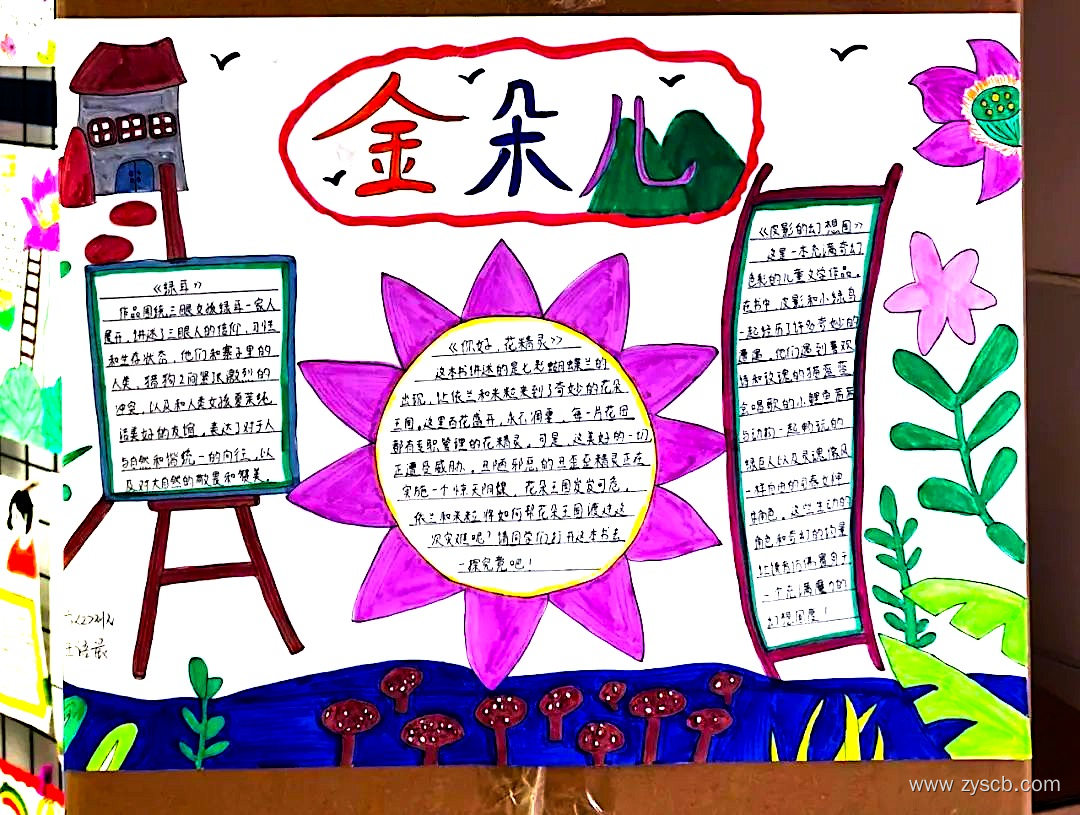 金朵儿
《绿耳》
作品围绕三眼女孩绿耳一家人
展开,讲述了三眼人的信仰,习性
和生存状态,他们和寨子里的
人类,猎狗之间紧张激烈的
冲突,以及和人类女孩夏茉纯
洁美好的友谊,表达了对于人
与自然和谐统一的向往,以
及对大自然的敬畏和赞美。
《你好,花精灵》
这本书讲述的是七彩蝴蝶兰的
出现,让依兰和米粒来到了奇妙的花朵
王国,这里百花盛开,永不凋零,每一片花田
都有专职管理的花精灵。可是,这美好的一切
正遭受威胁。丑陋邪恶的丑歪歪精灵正在
实施一个惊天阴谋,花朵王国岌岌可危。
依兰和米粒将如何帮花朵王国渡过这
次灾难呢?请同学们打开这本书去
一探究竟吧!
《皮影的幻想国》
这是一本充满奇幻
色彩的儿童文学作品。
在书中,皮影和小绿鸟
一起经历了许多奇妙的
遭遇,他们遇到喜欢
诗和玫瑰的猫薇薇
会唱歌的小鲤鱼
与动物一起畅玩的
绿巨人以及灵魂像风
一样自由的
角色。这些生动的
角色和奇幻的
让读者仿佛置身于
一个充满魔力的
幻想国度!
www.zyscb.com